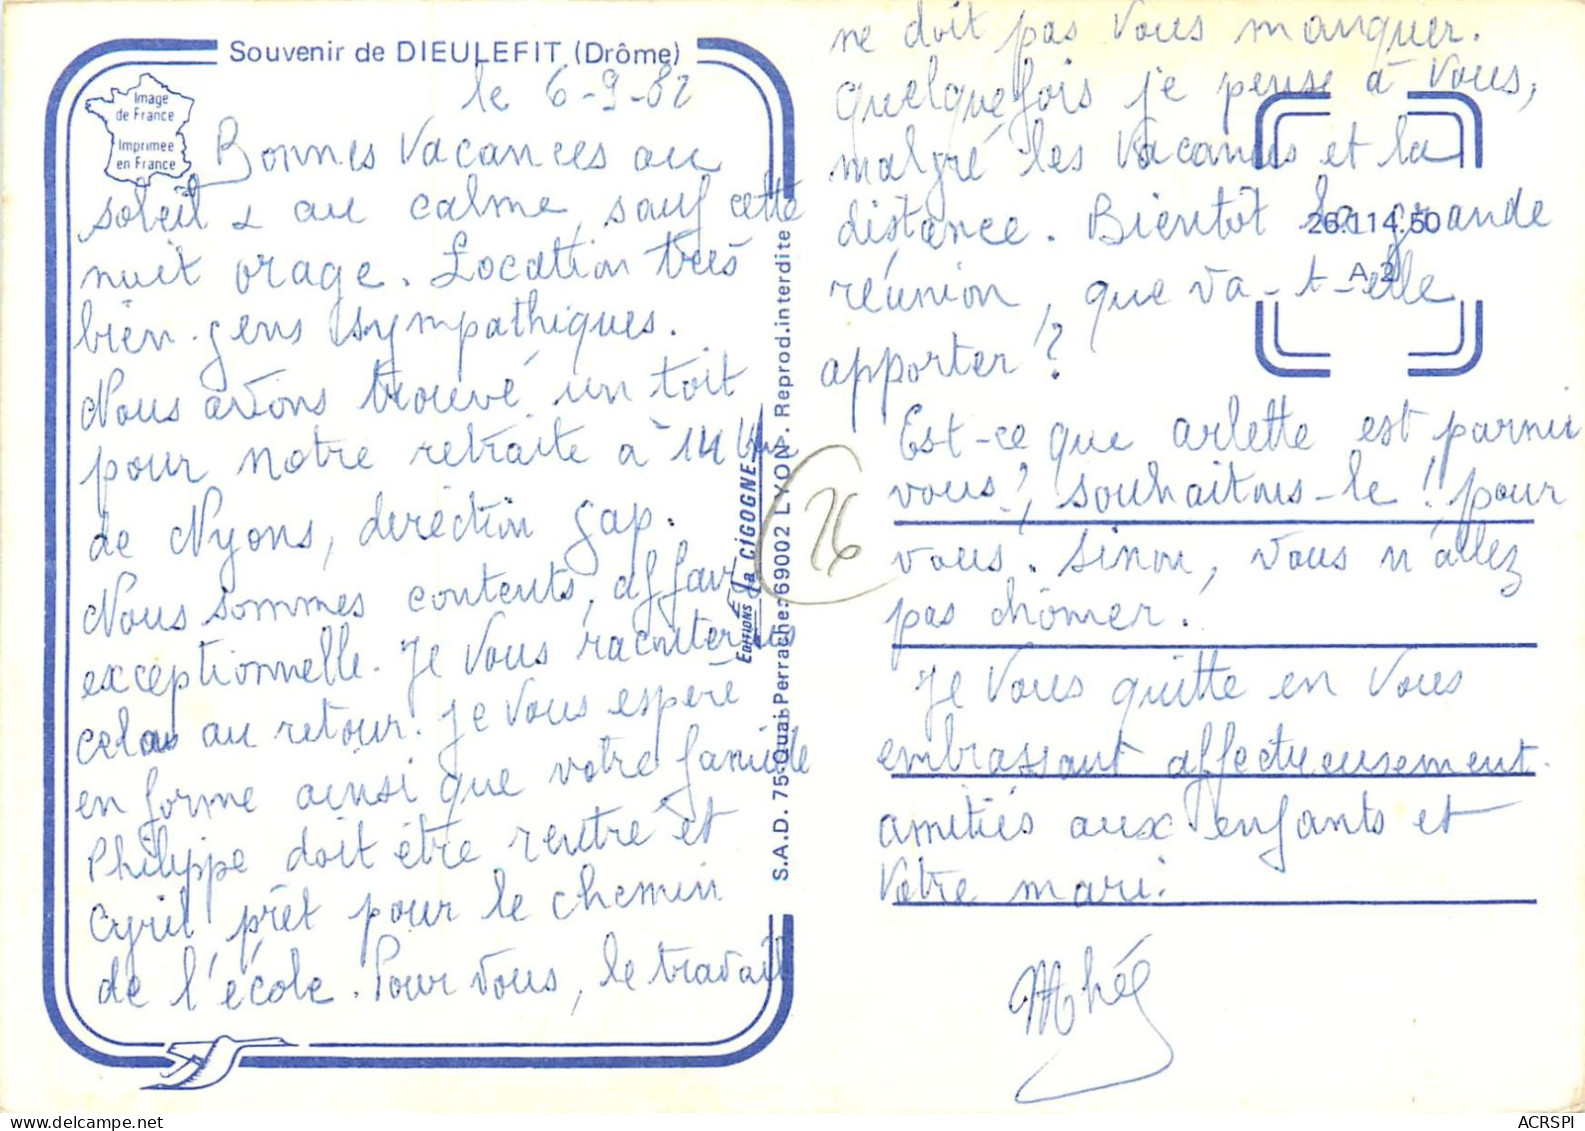 Souvenir de DIEULEFIT (Drôme)
Image
de France
Imprimée
en France
le 6-9-82
Bonnes vacances au
soleil & au calme, sauf cette
nuit orage. Location très
bien. gens sympathiques.
Nous avons trouvé un toit
pour notre retraite à 14 kms
de Nyons, direction Gap.
Nous sommes contents, affaire
exceptionnelle. Je vous raconterais
cela au retour. Je vous espère
en forme ainsi que votre famille
Philippe doit être rentré et
Cyril prêt pour le chemin
de l'école. Pour vous, le travail
EDITIONS la CIGOGNE
S.A.D. 75-Quai Perrache. 69002 LYON. Reprod.interdite
26
ne doit pas vous manquer.
quelquefois je pense à vous,
malgré les vacances et la
distance. Bientôt la grande
réunion, que va-t-elle
apporter?
26.114.50
A 2
Est-ce que arlette est parmi
vous?, souhaitons-le! pour
vous. Sinon, vous n'allez
pas chômer!
Je vous quitte en vous
embrassant affectueusement.
amitiés aux enfants et
Votre mari.
ACRSPI